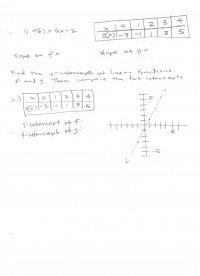 1) f(x) = 6x - 2
x | 0 | 1 | 2 | 3 | 4
g(x) | -3 | -1 | 1 | 3 | 5
slope of f = slope of g =
Find the y-intercepts of linear functions
f and g. Then compare the two intercepts
2.)
x | 0 | 1 | 2 | 3 | 4
g(x) | -3 | -1 | 1 | 3 | 5
5
5
-5
Y-intercept of f:
Y-intercept of g: